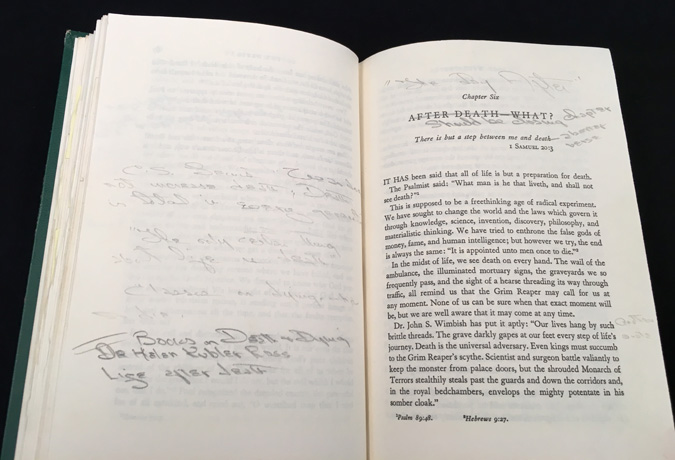 C.S. Lewis,
"The only certain thing
Classic on
Books on Death & Dying
Dr Helen Kubler Ross
Life after death
Chapter Six
AFTER DEATH—WHAT?
Should be closing chapter
There is but a step between me and death
1 SAMUEL 20:3
IT HAS been said that all of life is but a preparation for death.
The Psalmist said: "What man is he that liveth, and shall not
see death?"¹
This is supposed to be a freethinking age of radical experiment.
We have sought to change the world and the laws which govern it
through knowledge, science, invention, discovery, philosophy, and
materialistic thinking. We have tried to enthrone the false gods of
money, fame, and human intelligence; but however we try, the end
is always the same: "It is appointed unto men once to die."²
In the midst of life, we see death on every hand. The wail of the
ambulance, the illuminated mortuary signs, the graveyards we so
frequently pass, and the sight of a hearse threading its way through
traffic, all remind us that the Grim Reaper may call for us at
any moment. None of us can be sure when that exact moment will
be, but we are well aware that it may come at any time.
Dr. John S. Wimbish has put it aptly: "Our lives hang by such
brittle threads. The grave darkly gapes at our feet every step of life's
journey. Death is the universal adversary. Even kings must succumb
to the Grim Reaper's scythe. Scientist and surgeon battle valiantly to
keep the monster from palace doors, but the shrouded Monarch of
Terrors stealthily steals past the guards and down the corridors and,
in the royal bedchambers, envelops the mighty potentate in his
somber cloak."
¹Psalm 89:48. ²Hebrews 9:27.